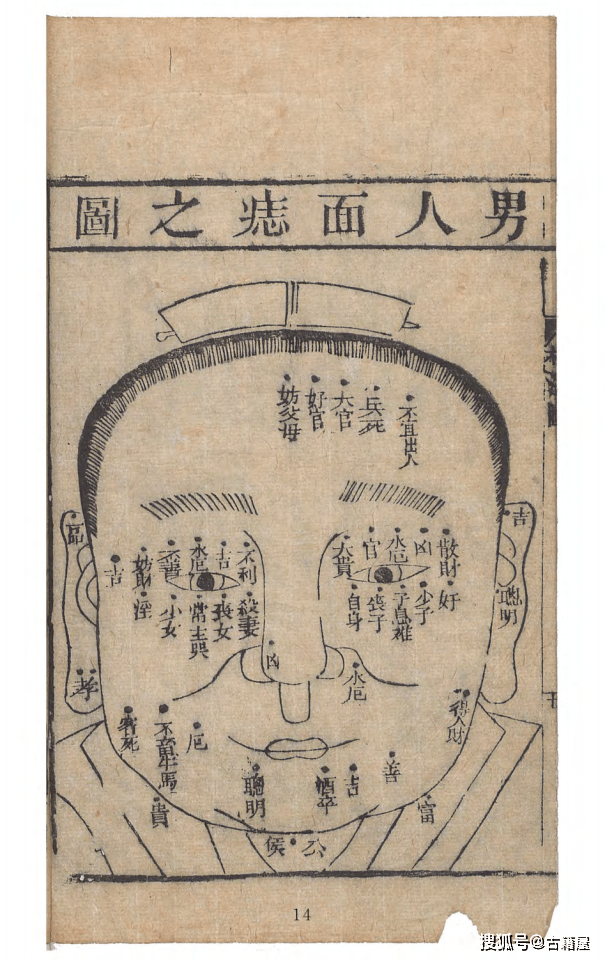 男人面痣之圖
不宜出人
兵死
大官
好官
妨父母
散財
凶
水厄
官
大貴
好
少子
子息难
丧子
自身
不利
吉
水厄
妨財
吉
殺妻
丧女
常主哭
少女
吉
聰明
孝
凶
水厄
得人財
善
富
吉
酒卒
聰明
厄
不宜牛馬
貴
客死
公
侯
14
搜狐号@古籍屋